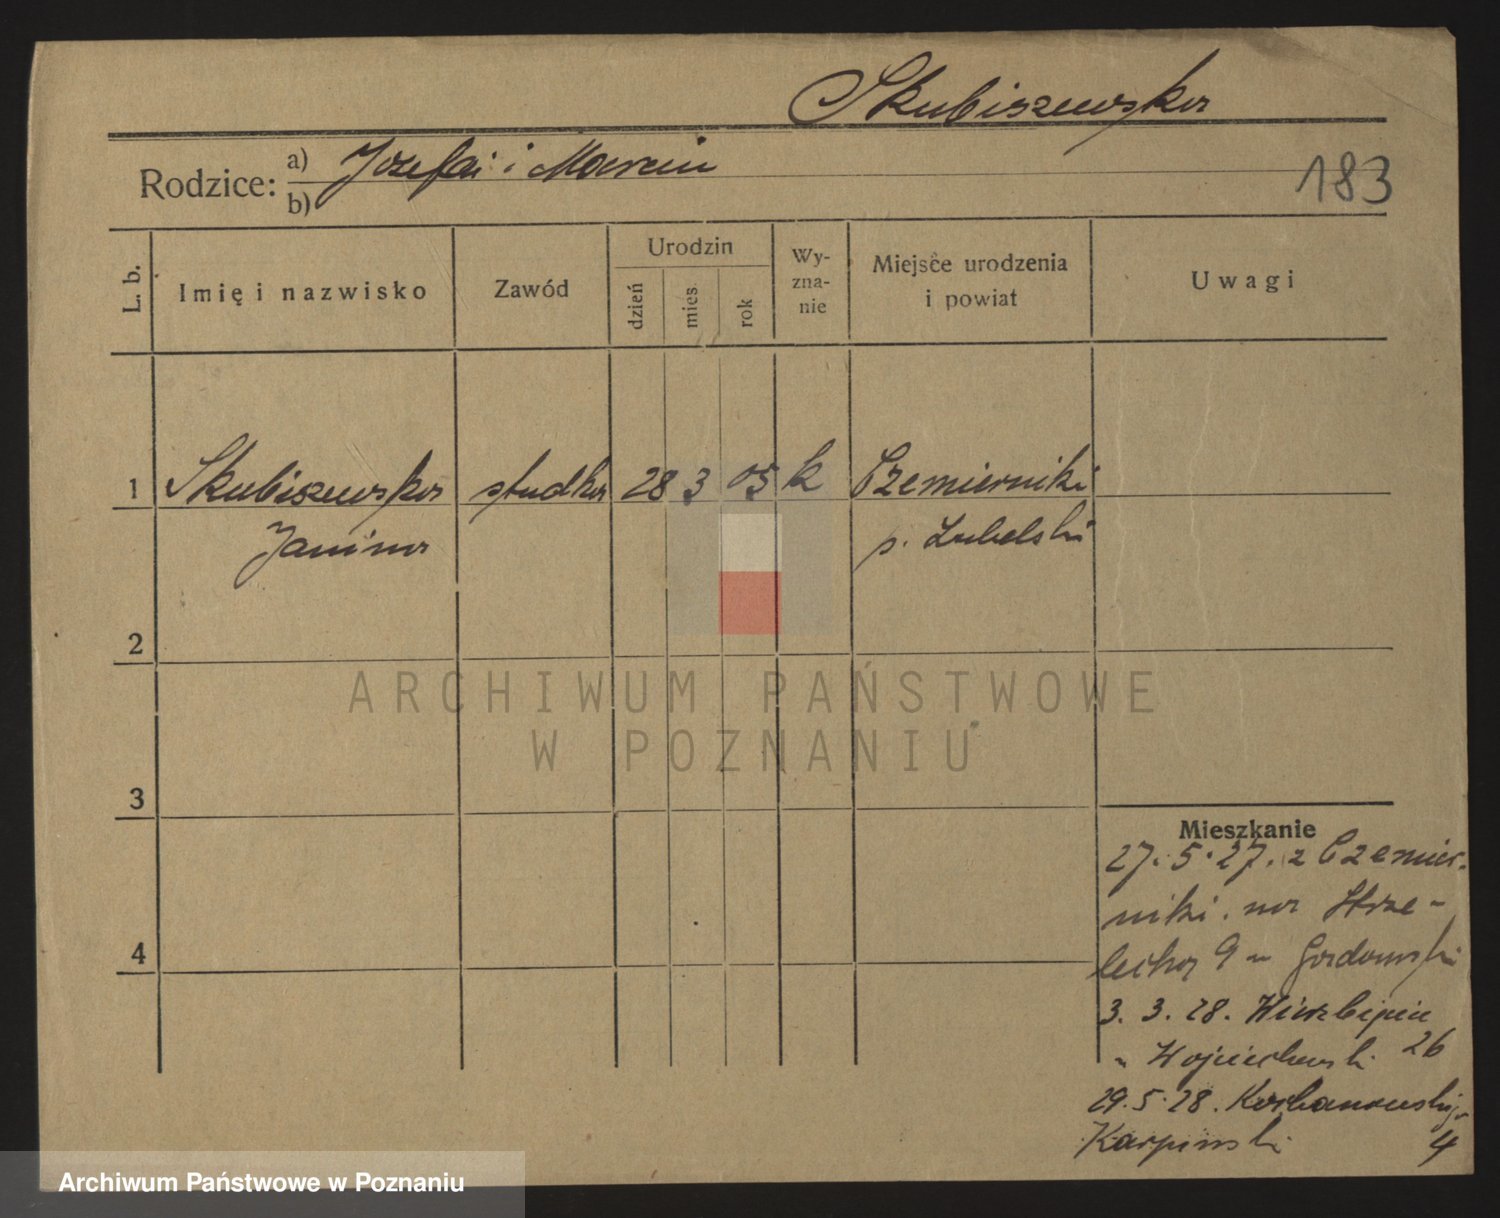 Skubiszewska
Rodzice: a) Józefa i Marcin
b)
183
L. b.
Imię i nazwisko
Zawód
Urodzin
dzień
mies.
rok
Wy-
zna-
nie
Miejsce urodzenia
i powiat
Uwagi
1 Skubiszewska studka 28 3 05 k Czemierniki
Janina p. Lubelski
2
3
4
Mieszkanie
27.5.27. z Czemier-
niki. na Strze-
lecką 9 u Gordowski
3. 3. 28. Wierzbięcic
26
u Wojciechowski
29.5.28. Kochanowskiego
Karpinski 4
ARCHIWUM PAŃSTWOWE
W POZNANIU
Archiwum Państwowe w Poznaniu